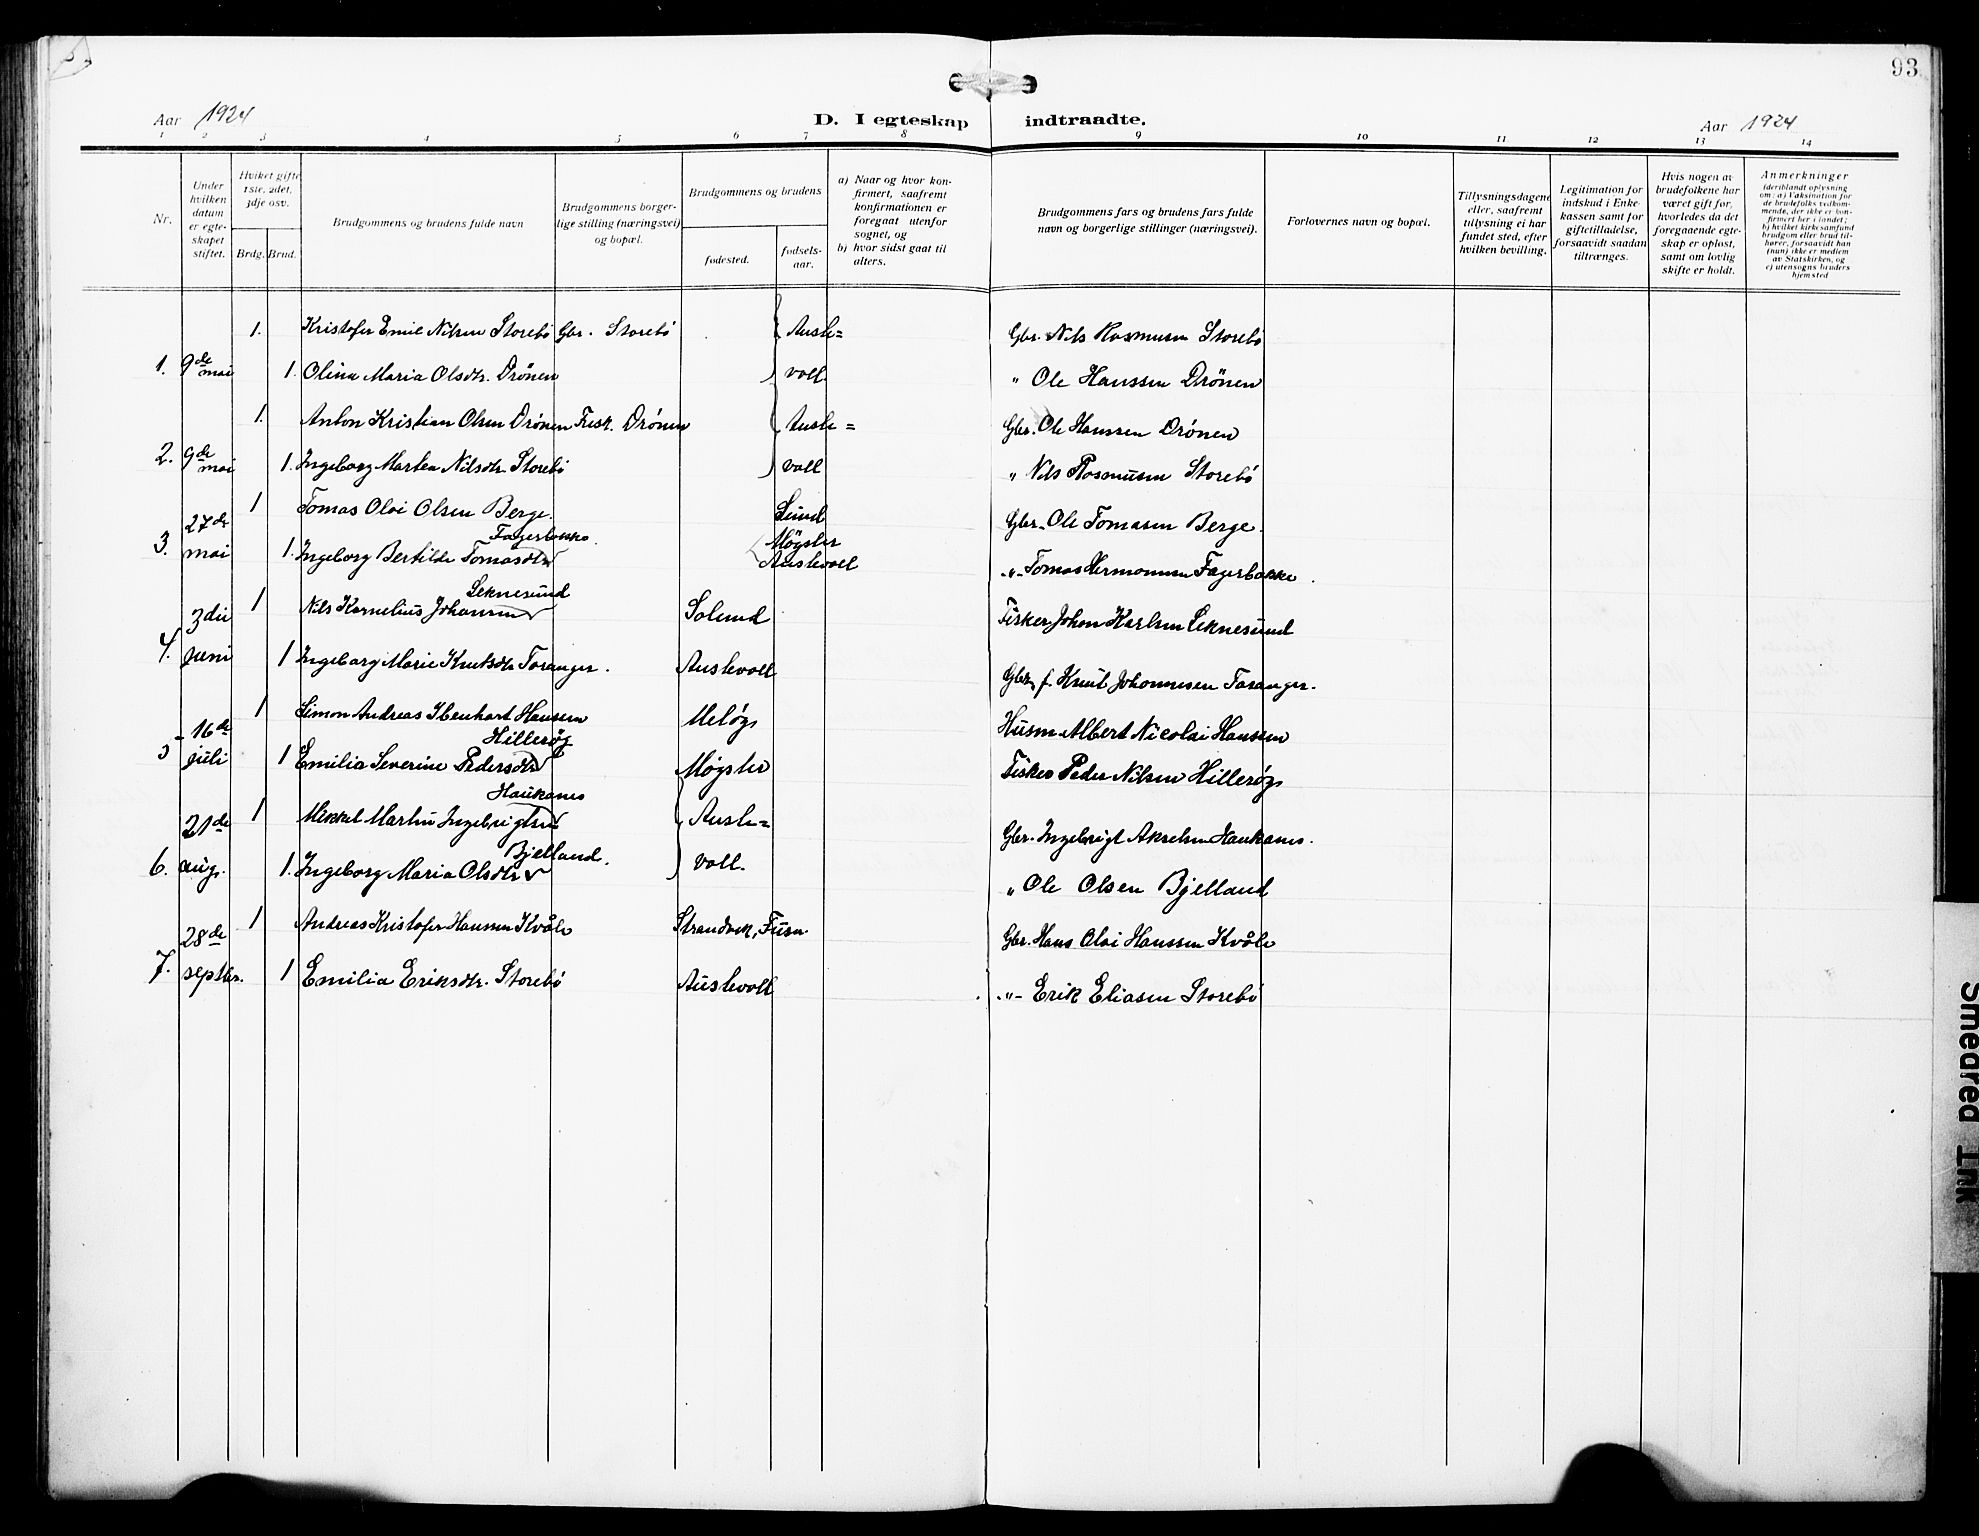 93
Aar 1924
D. I egteskap indtraadte.
Aar 1924
1 2 3 4 5 6 7 8 9 10 11 12 13 14
Nr.
Under hvilken datum er egteskapet stiftet.
Hvilket gifte 1ste, 2det, 3dje osv.
Brdg. Brud.
Brudgommens og brudens fulde navn
Brudgommens borgerlige stilling (næringsvei) og bopæl.
Brudgommens og brudens
fødested.
fødselsaar.
a) Naar og hvor konfirmert, saafremt konfirmationen er foregaat utenfor sognet, og
b) hvor sidst gaat til alters.
Brudgommens fars og brudens fars fulde navn og borgerlige stillinger (næringsvei).
Forlovernes navn og bopæl.
Tillysningsdagene eller, saafremt tillysning ei har fundet sted, efter hvilken bevilling.
Legitimation for indskud i Enkekassen samt for giftetilladelse, forsaavidt saadan tiltrænges.
Hvis nogen av brudefolkene har været gift før, hvorledes da det foregaaende egteskap er opløst, samt om lovlig skifte er holdt.
Anmerkninger
(deriblandt oplysning om: a) Vaksination for de brudefolks vedkommende, der ikke er konfirmert her i landet;
b) hvilket kirkesamfund brudgom eller brud tilhører, forsaavidt han (hun) ikke er medlem av Statskirken, og
c) utensogns bruders hjemsted
1. Kristofer Emil Nilsen Storebø Gbr. Storebø Auste= Gbr. Nils Rasmusen Storebø
1. 9de mai 1. Olina Maria Olsdtr. Drönen voll " Ole Hanssen Drönen
1. Anton Kristian Olsen Drönen Fisk. Drönen Auste= Gbr. Ole Hanssen Drönen
2. 9de mai 1. Ingeborg Martea Nilsdtr Storebø voll " Nils Rasmusen Storebø
1 Tomas Olai Olsen Berge. Sund Gbr. Ole Tomasen Berge.
Fagerbakke.
3. 27de mai 1. Ingeborg Bertilde Tomasdtr Møgster Austevoll -"- Tomas Hermannsen Fagerbakke.
Leknesund
1 Nils Kornelius Johansen Solund Fisker Johan Karlsen Leknesund
4. 3die juni 1 Ingeborg Marie Knutsdtr Toranger. Austevoll Gbr. f. Knut Johannesen Toranger.
1 Simon Andreas Ibenhart Hansen Meløy Husm. Albert Nicolai Hansen
Hillerøy
5 16de juli 1 Emilia Severine Pedersdtr Møgster Fisker Peder Nilsen Hillerøy
Haukanes
1 Mikkel Martin Ingebrigtsen Auste= Gbr. Ingebrigt Akselsen Haukanes.
Bjelland.
6. 21de aug. 1. Ingeborg Maria Olsdtr voll. " Ole Olsen Bjelland
1 Andreas Kristofer Hanssen Kvåle Strandvik, Fusa. Gbr. Hans Olai Hanssen Kvåle
7. 28de septbr. 1 Emilia Eriksdtr. Storebø Austevoll -"- Erik Eliasen Storebø
Smeared Ink